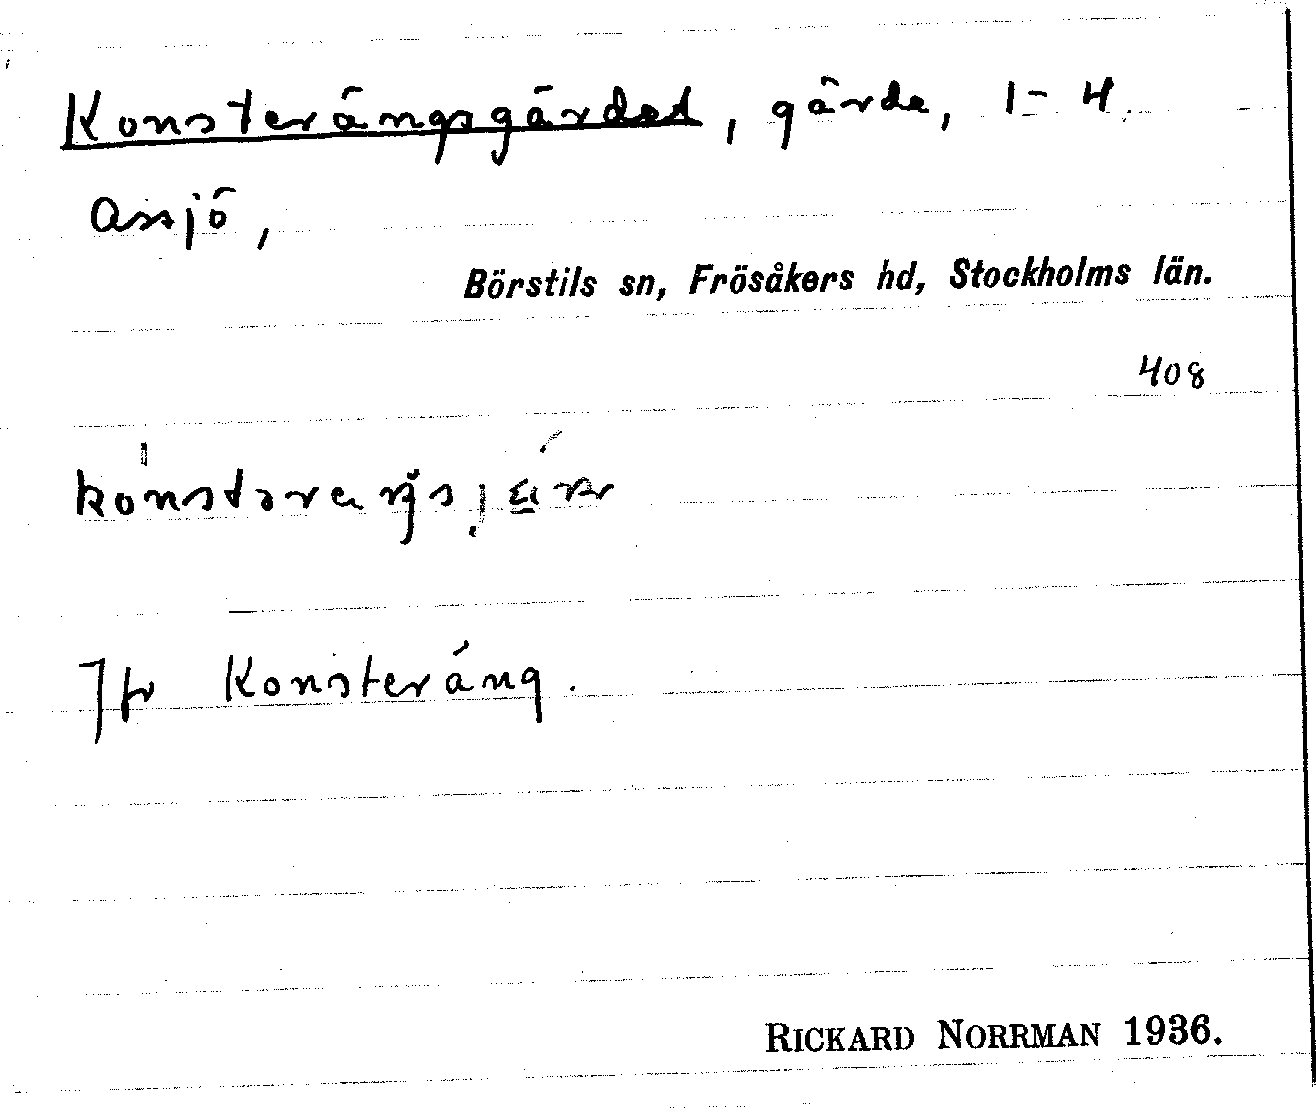 Konsterängsgärdet, gärde, 1-4
Assjö,
Börstils sn, Frösåkers hd, Stockholms län.
408
Jfr Konsteräng.
RICKARD NORRMAN 1936.